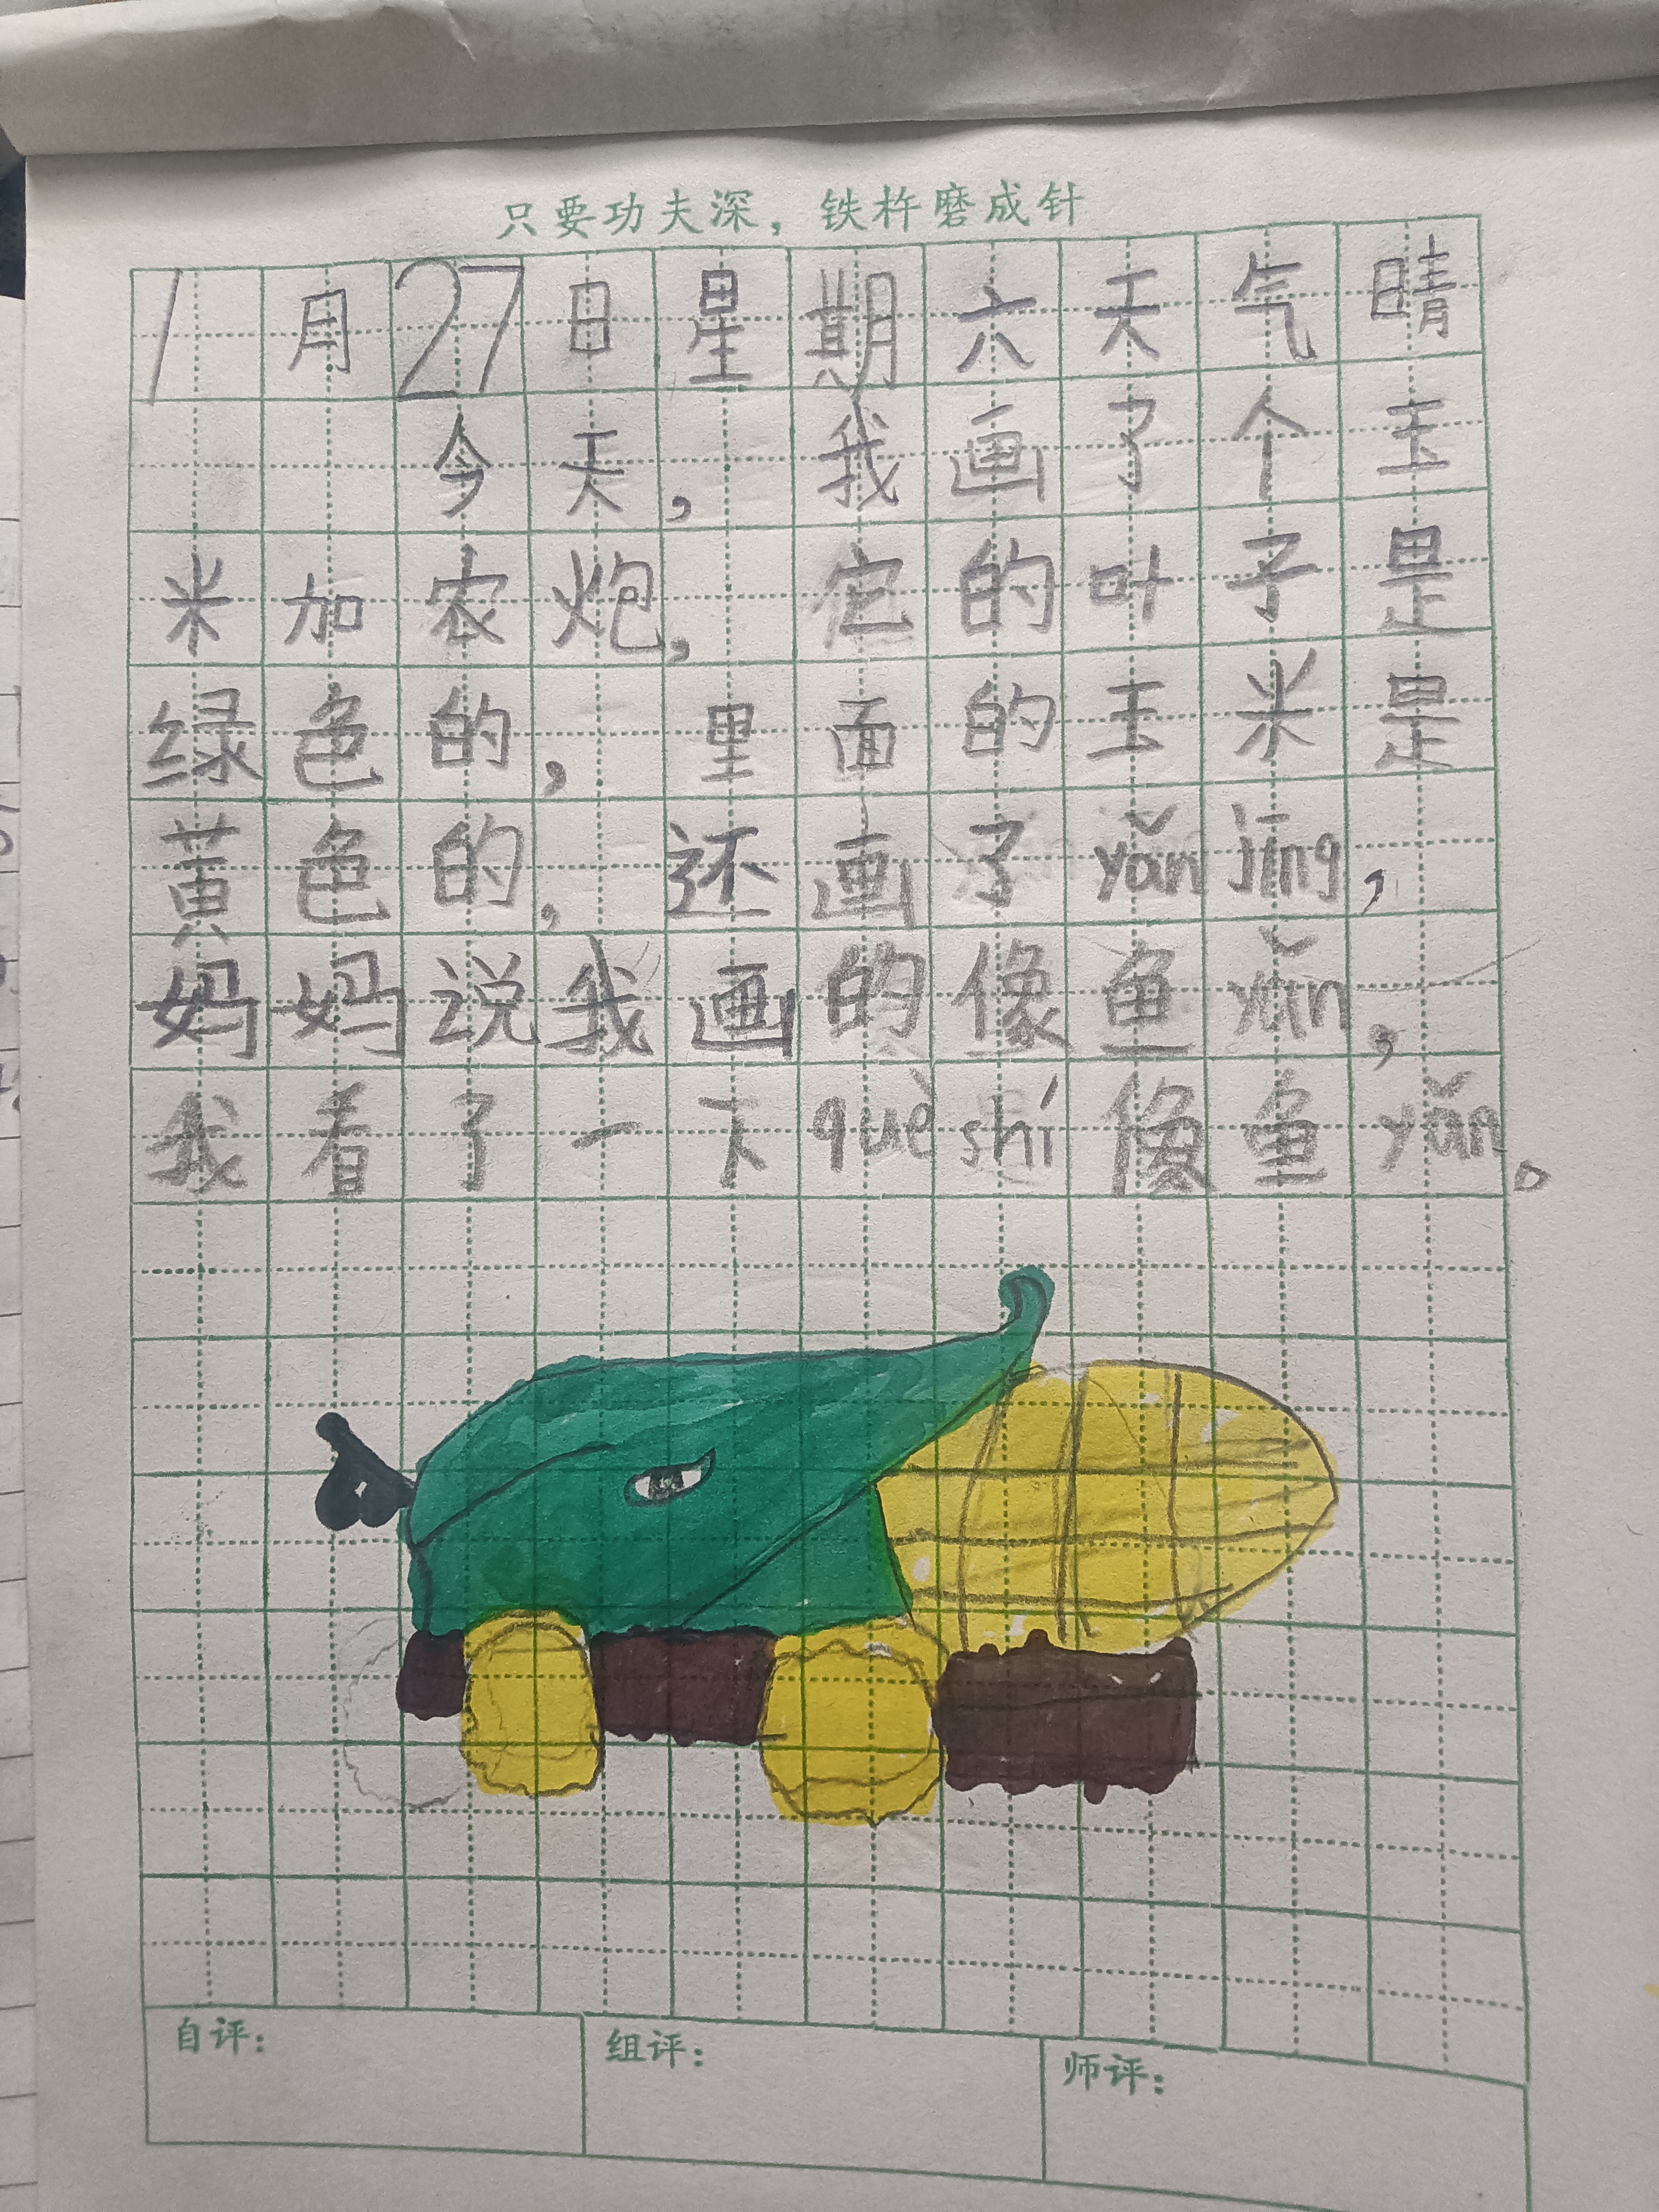 只要功夫深，铁杵磨成针
1月27日星期六天气晴
今天，我画了个玉
米加农炮，它的叶子是
绿色的，里面的玉米是
黄色的，还画了yǎn jīng，
妈妈说我画的像鱼yǎn，
我看了一下què shí像鱼yǎn。
自评：
组评：
师评：